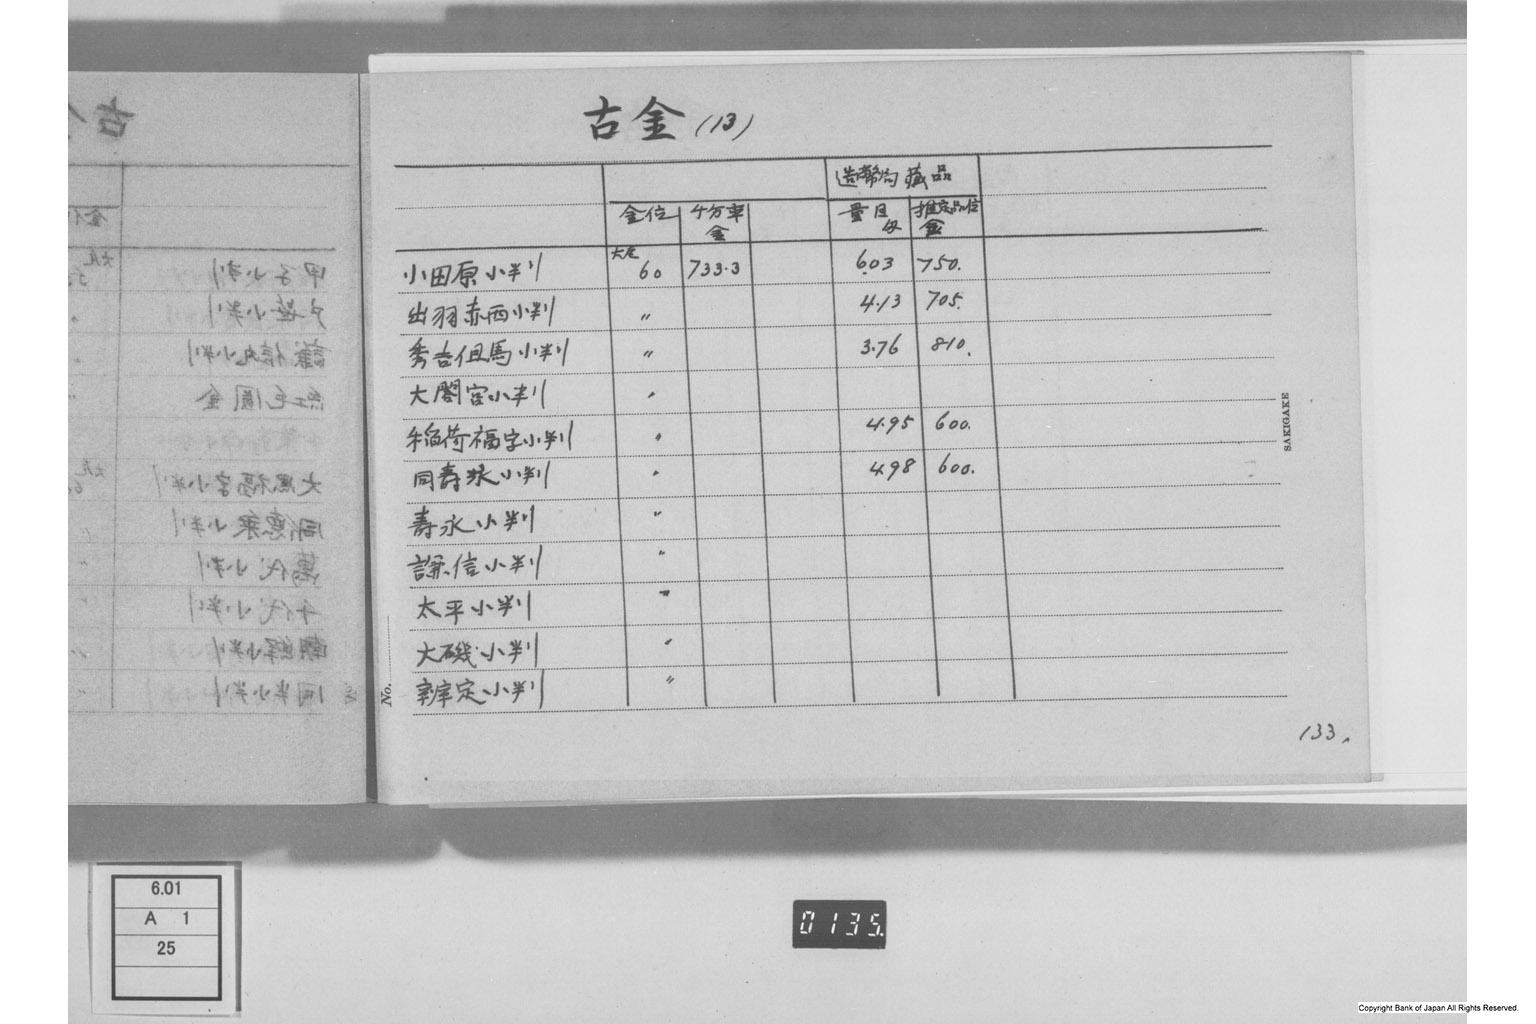 古金(13)
造幣局藏品
金位 千分率金 量目匁 推定品位金
小田原小判 大尤 60 733.3 6.03 750.
出羽赤西小判 〃 4.13 705.
秀吉但馬小判 〃 3.76 810.
大閣宮小判 〃
稲荷福字小判 〃 4.95 600.
同寿永小判 〃 4.98 600.
壽永小判 〃
謙信小判 〃
太平小判 〃
大磯小判 〃
定小判 〃
No.
SAKIGAKE
133.
6.01
A 1
25
0135.
Copyright Bank of Japan All Rights Reserved.